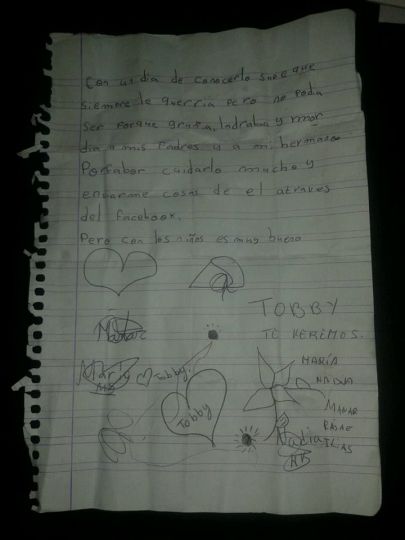 Con un dia de conocerlo supe que
siempre le querria pero no podia
ser porque gruñia, ladraba y mor
dia a mis Padres y a mi hermano.
Porfabor cuidarlo mucho y
enviarme cosas de el atraves
del facebook.
Pero con los niños es muy bueno
TOBBY
TE KEREMOS.
Manar
MARÍA
Tobby.
NADIA
Tobby
MANAR
Nadia
ILIAS